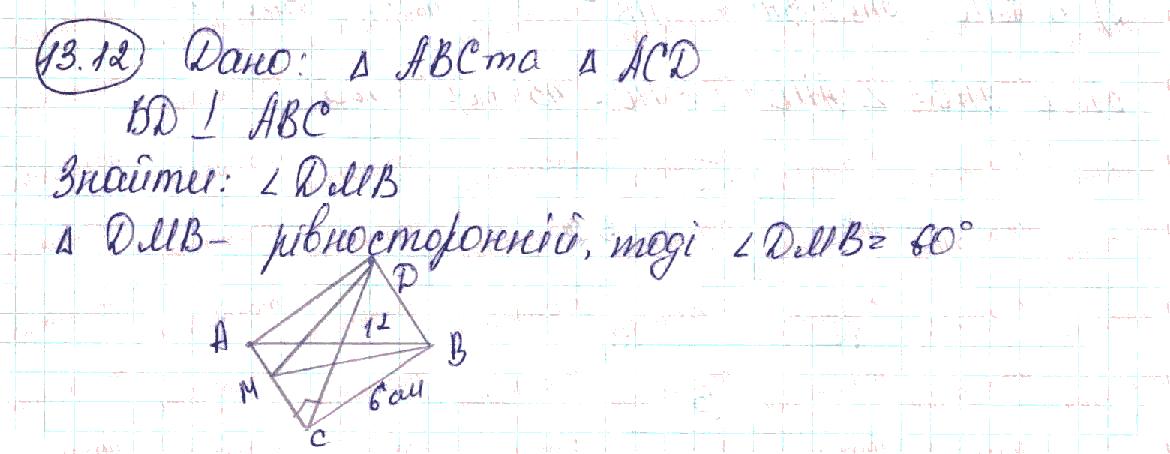 13.12 Дано: Δ ABC та Δ ACD
BD ⊥ ABC
Знайти: ∠DMB
Δ DMB - рівносторонній, тоді ∠DMB = 60°
D
A
12
B
M
6 см
C